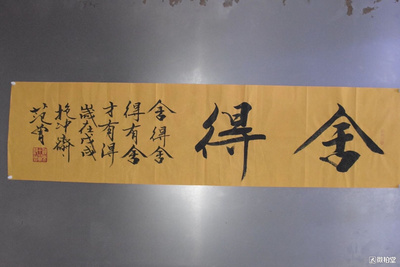 舍得
舍得舍
得有舍
才有得
歲在戊戌
於沖齋
范曾
微拍堂